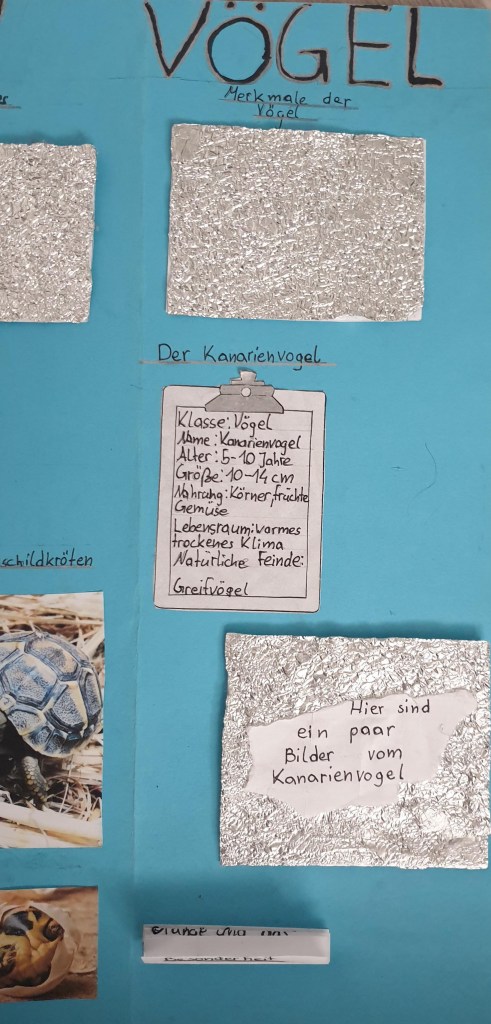 VÖGEL
Merkmale der
Vögel
Der Kanarienvogel
Klasse: Vögel
Name: Kanarienvogel
Alter: 5-10 Jahre
Größe: 10-14 cm
Nahrung: Körner, früchte
Gemüse
Lebensraum: warmes
trockenes Klima
Natürliche Feinde:
Greifvögel
schildkröten
Hier sind
ein paar
Bilder vom
Kanarienvogel
Besonderheit